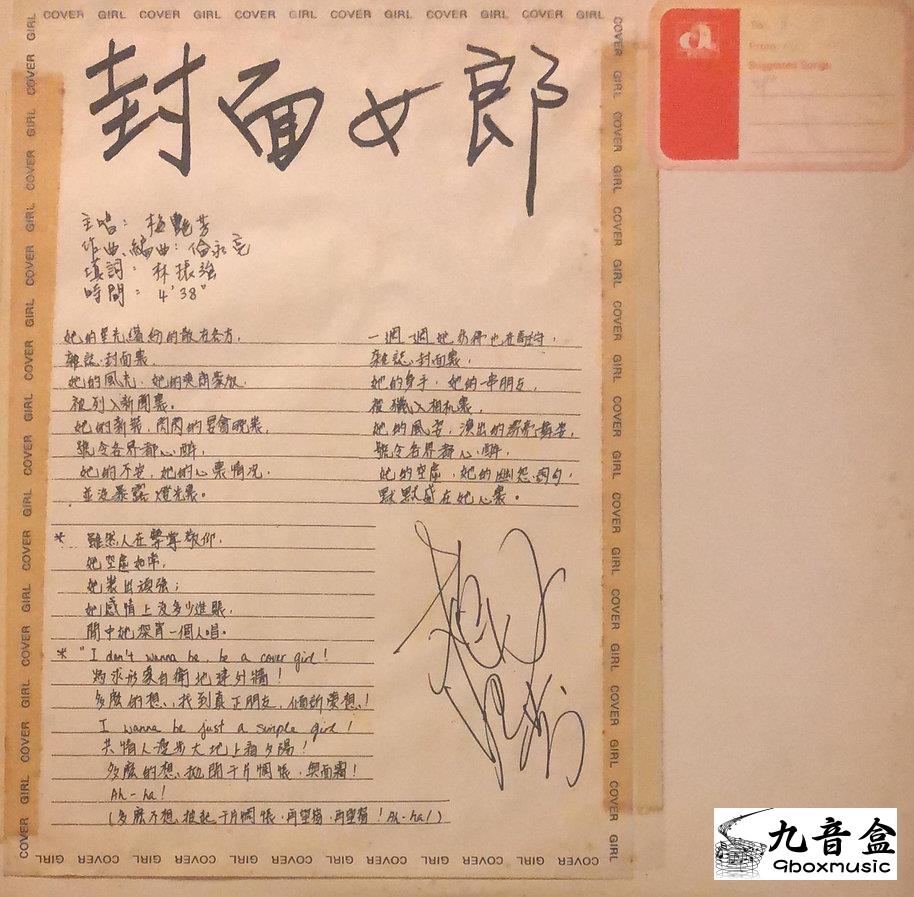 COVER GIRL COVER GIRL COVER GIRL COVER GIRL COVER GIRL COVER GIRL
封面女郎
主唱：梅艷芳
作曲、編曲：倫永亮
填詞：林振強
時間：4'38"
她的星光繽紛的散在各方，
雜誌封面裏
她的風光，她的爽朗豪放
被列入新聞裏。
她的新裝，閃閃的宴會晚裝
號令各界都心醉
她的不安，她的心裏情況
並沒暴露燈光裏。
一週一週她
雜誌封面裏，
她的身手，她的一串朋友，
被獵入相机裏，
她的風姿，演出的舞姿，
號令各界都心醉，
她的空虛，她的幽怨詞句，
默默盛在她心裏。
* 雖然人在擊掌敬仰，
她空虛如常，
她裝出頑強；
她感情上沒多少進賬，
閒中她深宵一個人唱。
* "I don't wanna be, be a cover girl!
為求形象自衛地建外牆！
多麼的想、找到真正朋友，傾訴夢想！
I wanna be just a simple girl!
共情人漫步大地上看夕陽！
多麼的想、拋開千片惆悵，與面霜！
Ah-ha!
(多麼不想、掛起千片惆悵，再望窗，再望窗！Ah-ha!)
COVER GIRL COVER GIRL COVER GIRL COVER GIRL COVER GIRL COVER GIRL
a
To:
From:
Suggested Songs
九音盒
9boxmusic